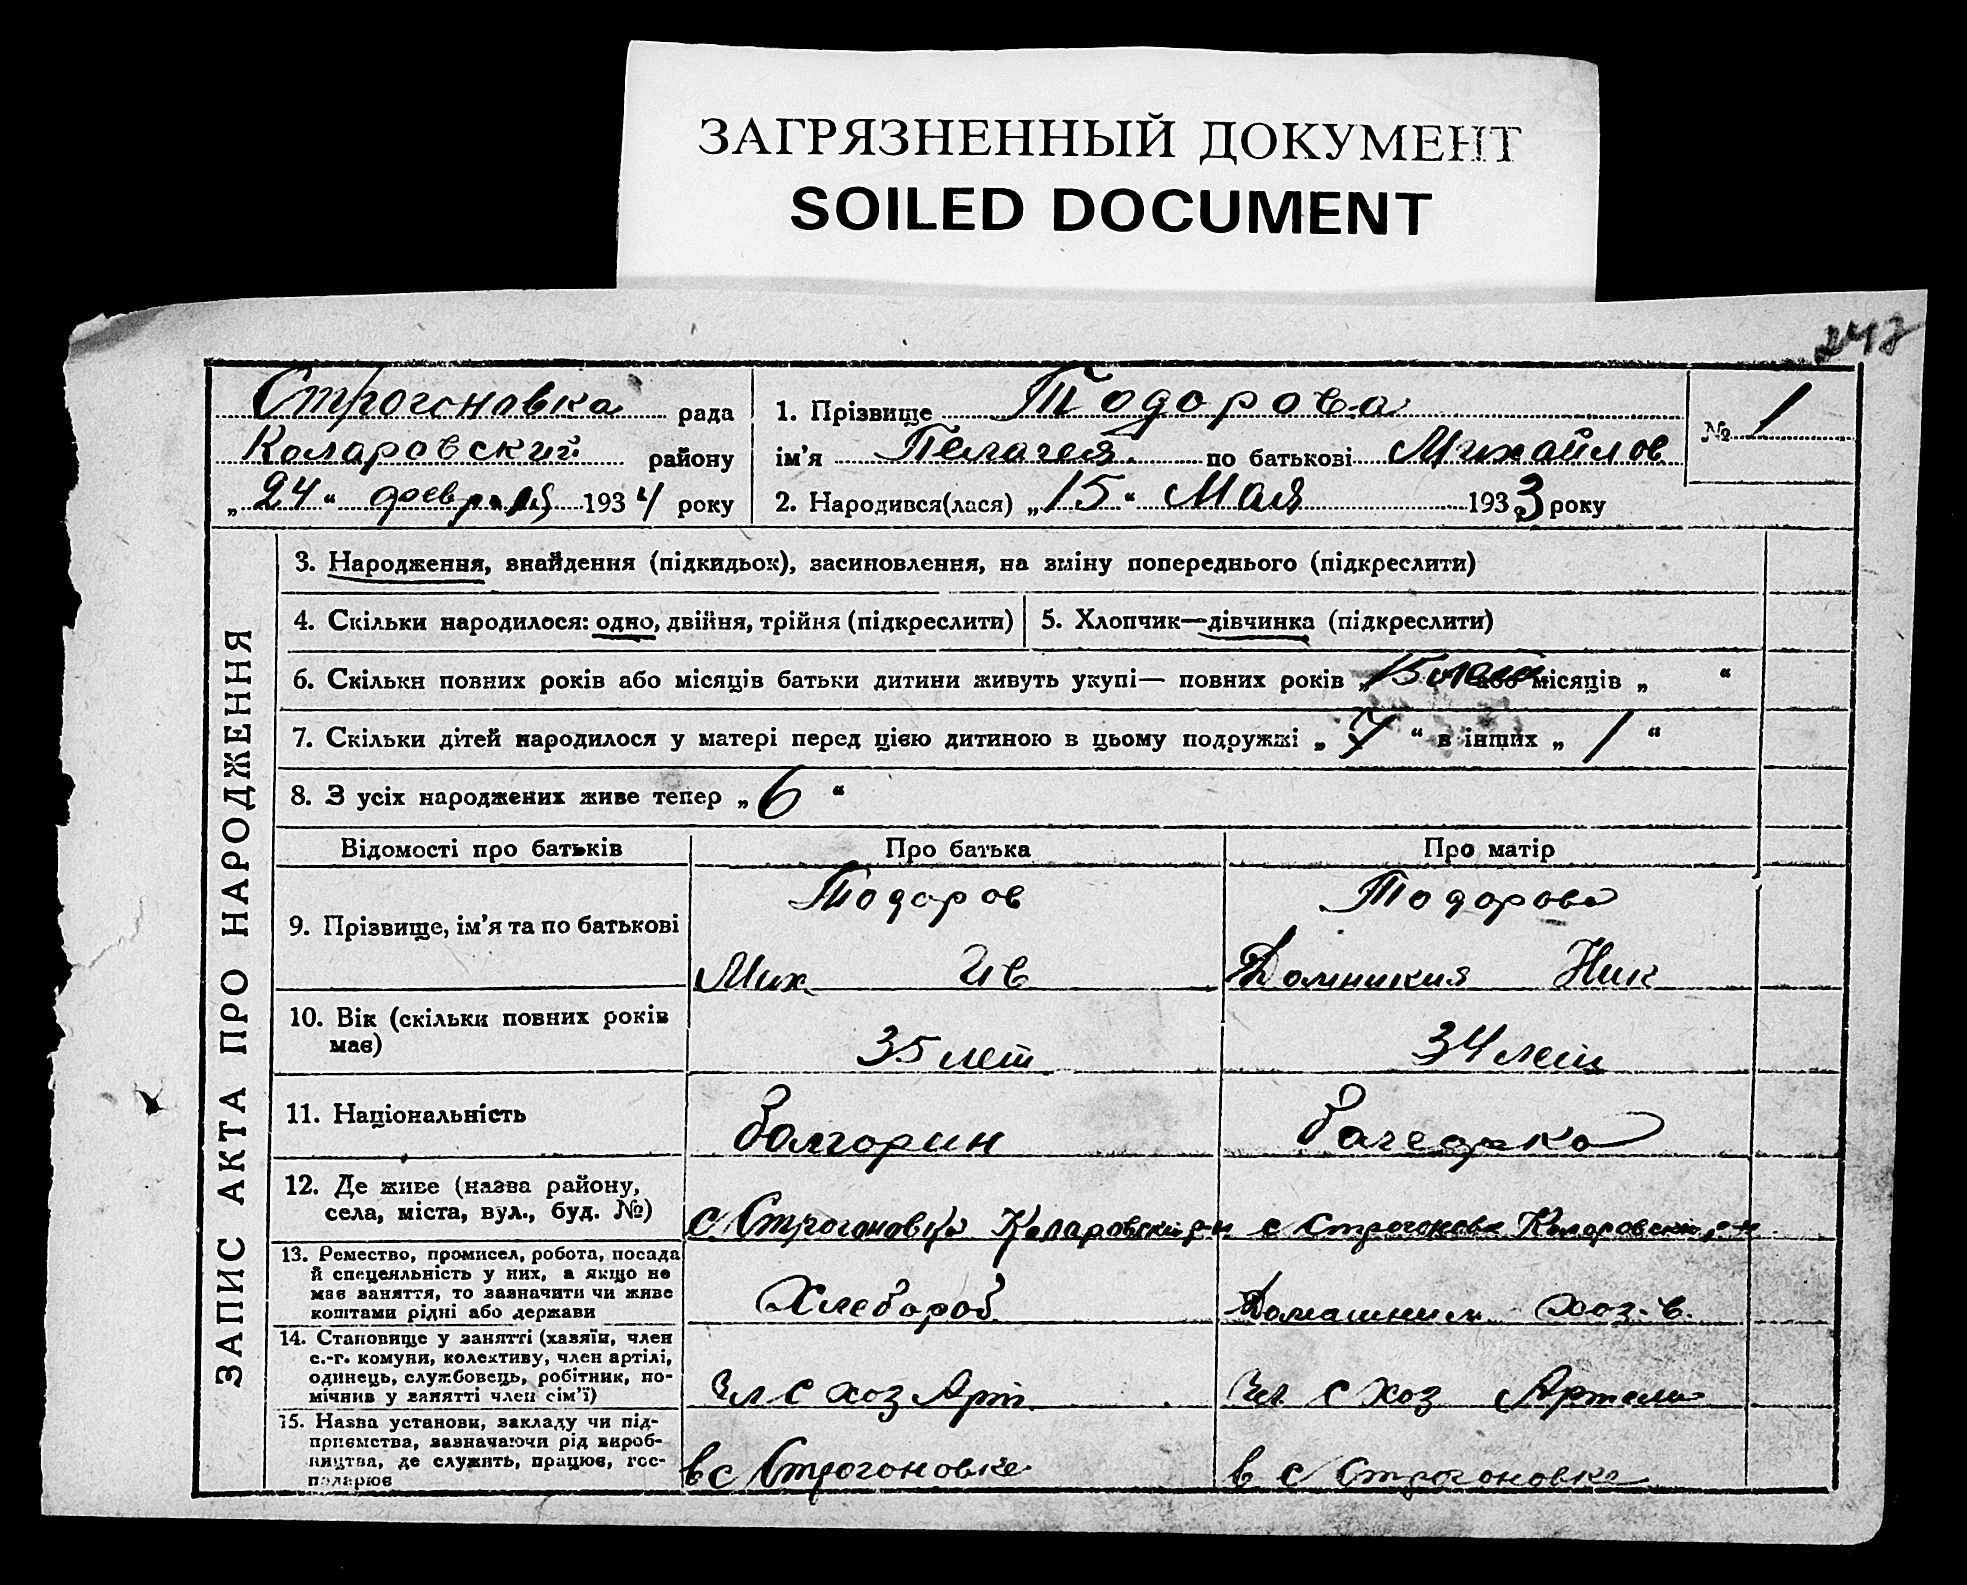 ЗАГРЯЗНЕННЫЙ ДОКУМЕНТ
SOILED DOCUMENT
Строгоновка рада
Коларовский району
„24“ февраля 1934 року
1. Прізвище Тодорова
ім’я Пелагея по батькові Михайлов
2. Народився(лася) „15“ Мая 1933 року
№ 1
ЗАПИС АКТА ПРО НАРОДЖЕННЯ
3. Народження, знайдення (підкидьок), засиновлення, на зміну попереднього (підкреслити)
4. Скільки народилося: одно, двійня, трійня (підкреслити)
5. Хлопчик—дівчинка (підкреслити)
6. Скільки повних років або місяців батьки дитини живуть укупі— повних років „15 або місяців „ “
7. Скільки дітей народилося у матері перед цією дитиною в цьому подружжі „7“ в інших „1“
8. З усіх народжених живе тепер „6“
Відомості про батьків Про батька Про матір
9. Прізвище, ім’я та по батькові
Тодоров
Мих Ив
Тодорова
Домникия Ник
10. Вік (скільки повних років
має)
35 лет
34 лет
11. Національність
Болгорин
12. Де живе (назва району,
села, міста, вул., буд. №)
с Строгоновка Коларовский р-н
с Строгоновка Коларовский р-н
13. Ремество, промисел, робота, посада
й спецеяльність у них, а якщо не
має заняття, то зазначити чи живе
коштами рідні або держави
Хлебороб
Домашним хоз-в.
14. Становище у занятті (хазяїн, член
с.-г. комуни, колективу, член артілі,
одинець, службовець, робітник, по-
мічник у занятті член сім’ї)
Чл с хоз Арт.
Чл. с хоз Артели
15. Назва установи, закладу чи під-
приємства, зазначаючи рід вироб-
ництва, де служить, працює, гос-
поларює
в с Строгоновке
в с Строгоновке